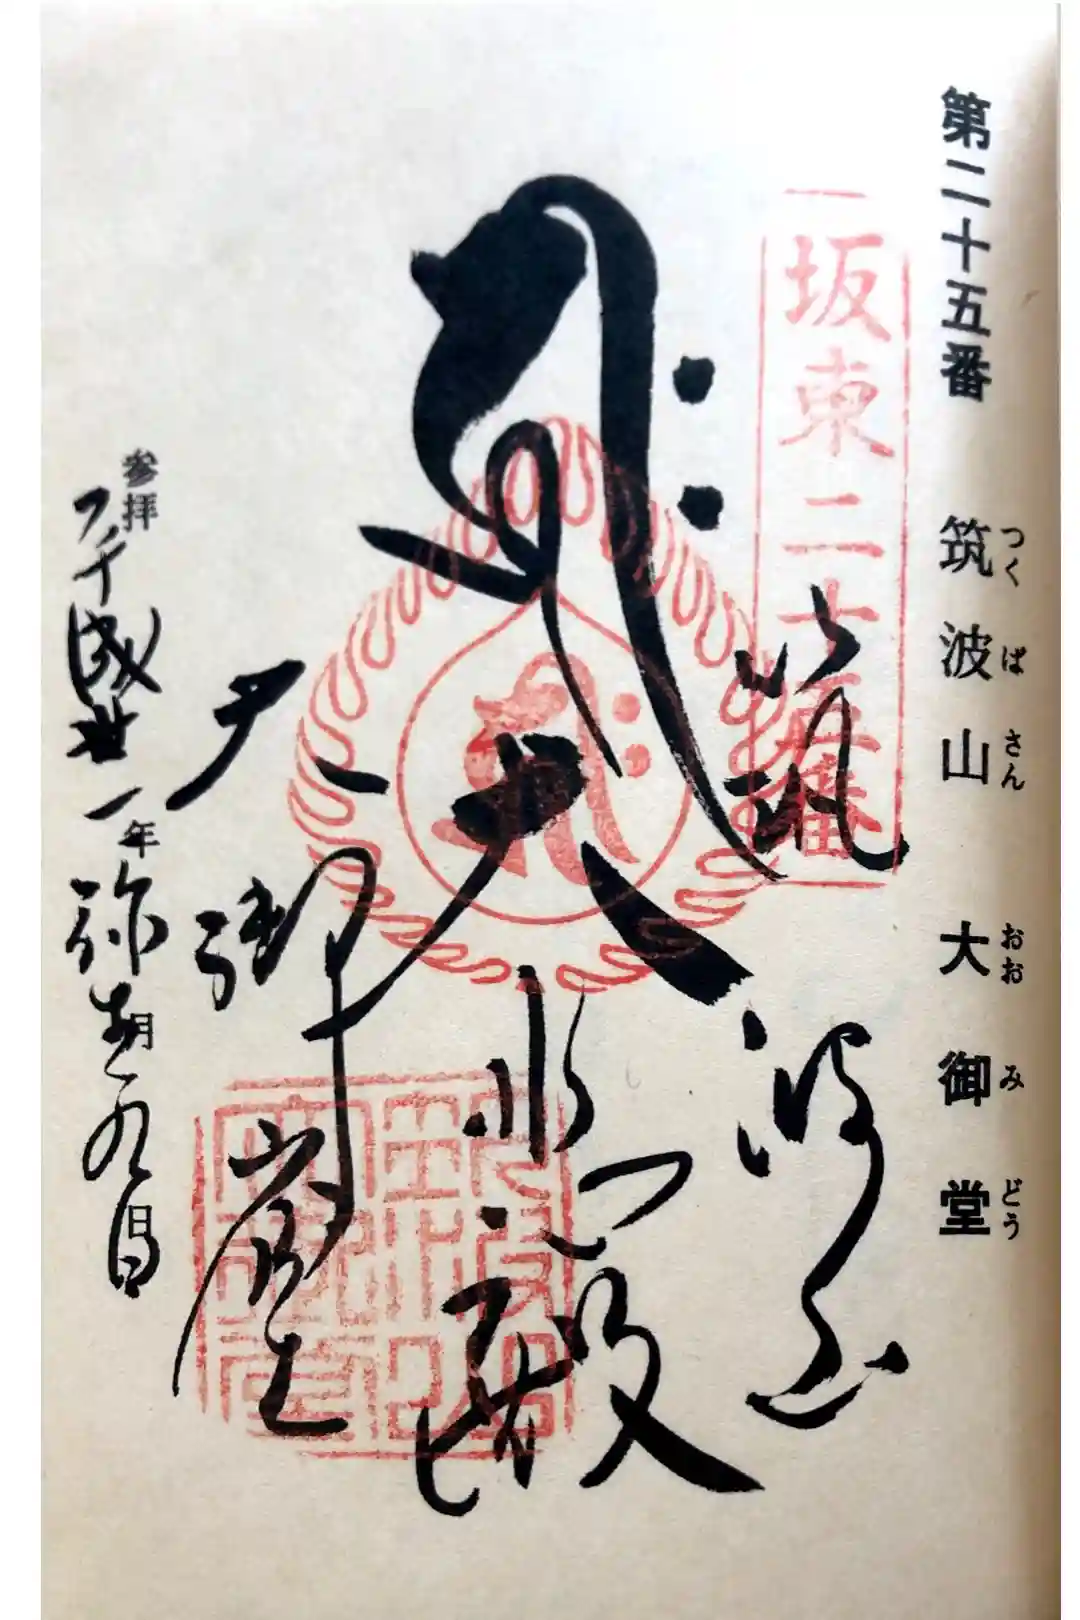 第二十五番 筑波山大御堂
つくば さん おお み どう
坂東二十五番
筑波山
キリーク
大悲殿
大御堂
参拝
平成廿一年弥生月九日